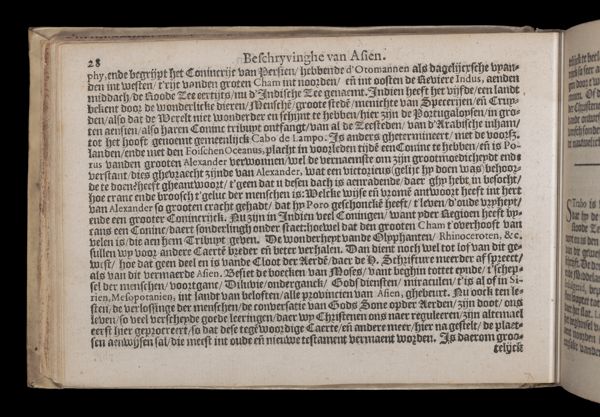 28
Beschryvinghe van Asien.
phy, ende begrijpt het Conincrijc van Persien/ hebbende d'Otomannen als dagelijcxsche vyan-
den int westen/ t'rijc vanden grooten Cham int noorden/ eñ int oosten de Reviere Indus, aenden
middach/ de Roode Zee eertijts/ nu d'Indische Zee genaemt. Indien heeft het vijfde/ een landt
bekent door de wonderlicke dieren/ Mensché/ groote stedē/ menichte van Specerijen/ eñ Cruy-
den/ also dat de Werelt niet wonderder en schijnt te hebben/ hier zijn de Portugaloysen/ in gro-
ten aensien/ also haren Coninc tribuyt ontfangt/ van al de Zeesteden/ van d'Arabische inham/
tot het hooft genoemt gemeenlijck Cabo de Lampo. Is anders ghetermineert/ met de voorsz.
landen/ ende met den Eoischen Oceanus, placht in voorleden tijdē een Coninc te hebben/ eñ is Po-
rus vanden grooten Alexander verwonnen/ wel de vernaemste om zijn grootmoedicheydt ende
verstant/ dies ghevraecht zijnde van Alexander, wat een victorieus/ gelijc hy doen was/ behoor-
de te doen? heeft gheantwoort/ t'geen dat u desen dach is aenradende/ daer ghy hebt in besocht/
hoe cranc ende broosch t'geluc der menschen is: Welcke wijse eñ vromē antwoort heeft int hert
van Alexander so grooten cracht gehadt/ dat hy Poro geschoncké heeft/ t'leven/ d'oude vryheyt/
ende een grooter Conincrijck. Nu zijn in Indien veel Coningen/ want yder Regioen heeft by-
cans een Coninc/ daert sonderlingh onder staet: hoewel dat den grooten Cham t'overhooft van
velen is/ die aen hem Tribuyt geven. De wonderheyt vande Olyphanten/ Rhinoceroten, &c.
sullen wy voor andere Caerté breder eñ beter verhalen. Dan dient noch wel tot lof van dit ge-
west/ hoe dat geen deel en is vande Cloot der Aerdē/ daer de H. Schrifture meerder af spreect/
als van dit vermaerde Asien. Besiet de boecken van Moses/ vant beghin tottet eynde/ t'schep-
sel der menschen/ voortganc/ Diluvie/ onderganck/ Gods diensten/ miraculen/ t'is al of in Si-
rien, Mesopotanien, int landt van beloften/ alle provincien van Asien, ghebeurt. Nu oock ten le-
sten/ de verlossinge der menschen/ de conversatie van Gods Sone op der Aerden/ zijn doot/ ons
leven/ so veel verscheyde goede leeringen/ daer wy Christenen ons naer reguleeren/ zijn altemael
eerst hier geprofereert/ so dat dese tegēwoordige Caerte/ eñ andere meer/ hier na gestelt/ de plaet-
sen aenwijsen sal/ die meest int oude eñ nieuwe testament vermaent worden. Is daerom groo-
telijck